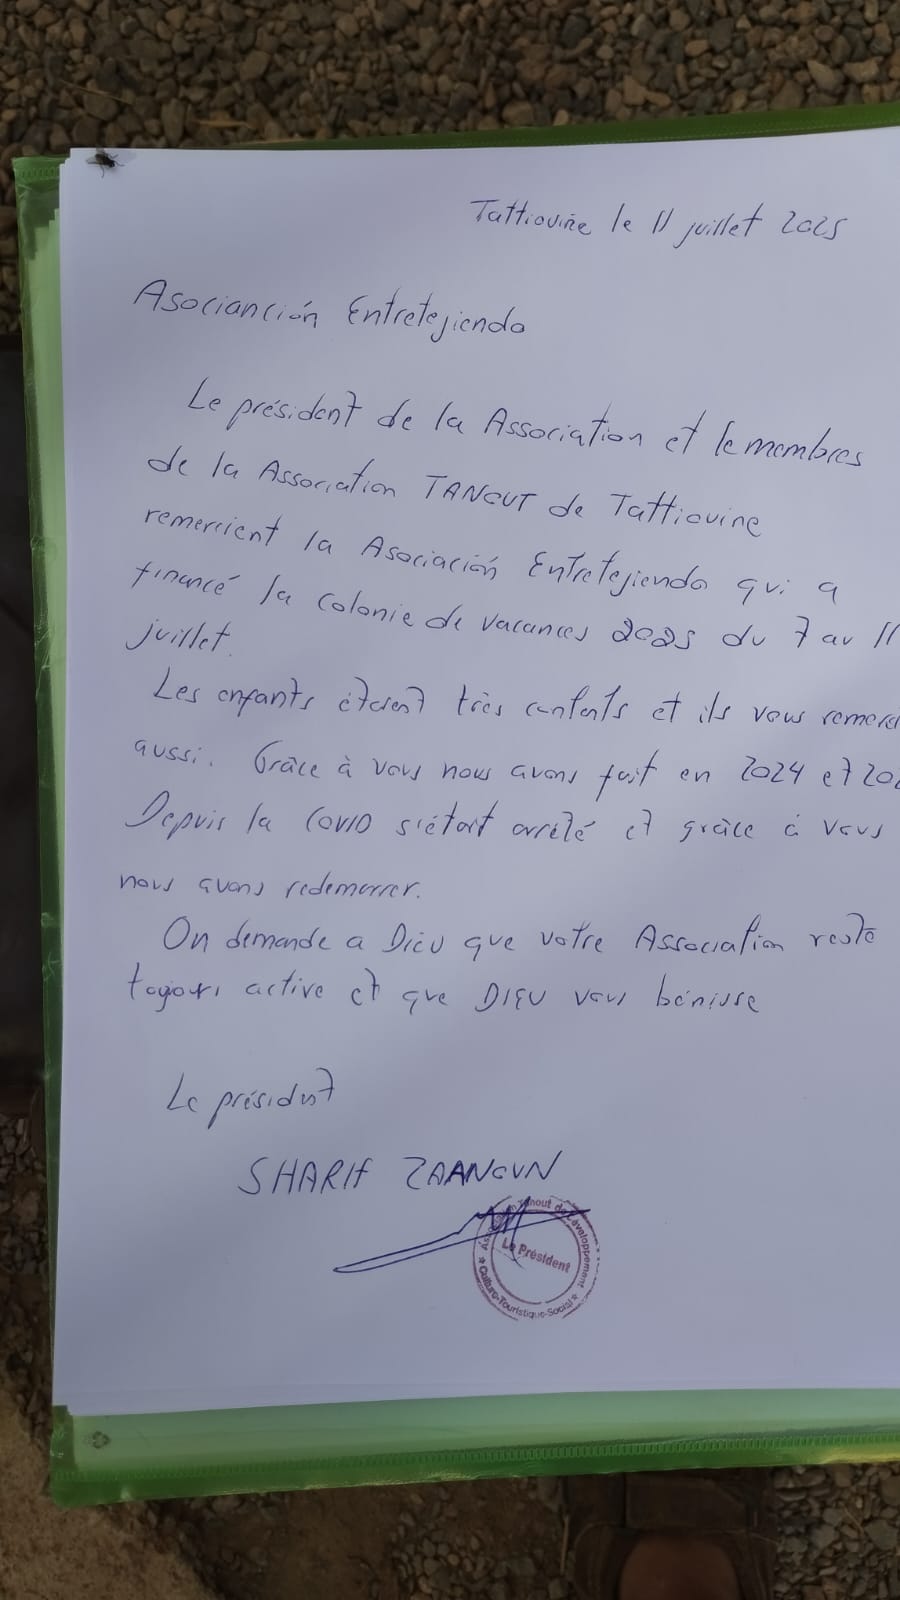 Tattiouine le 11 juillet 2025
Asocianción Entretejiendo
Le président de la Association et le membres
de la Association TANOUT de Tattiouine
remercient la Asociación Entretejiendo qui a
financé la colonie de vacances 2025 du 7 au 11
juillet.
Les enfants étaient très contents et ils vous
aussi. Grâce à vous nous avons fait en 2024 et
Depuis la COVID s'était arrêté et grâce à vous
nous avons redemarrer.
On demande a Dieu que votre Association reste
toujours active et que DIEU vous bénisse
Le président
SHARIF ZAANOUN
Association Tanout de Développement
Le Président
★ Culture-Touristique-Social ★